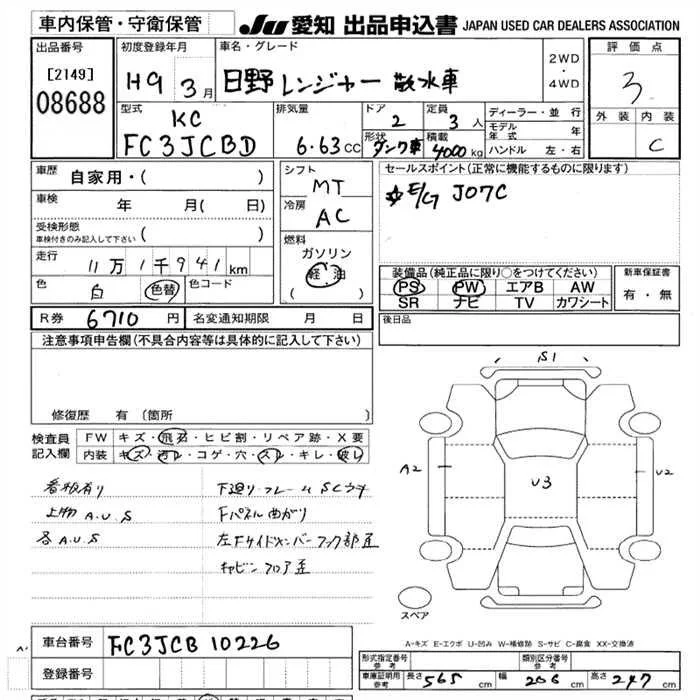 車内保管・守衛保管
JU 愛知 出品申込書 JAPAN USED CAR DEALERS ASSOCIATION
出品番号
[2149]
08688
初度登録年月
H9 3月
車名・グレード
日野レンジャー 散水車
2WD
・
4WD
評価点
3
外装 内装
C
型式
KC
FC3JCBD
排気量
6.63cc
ドア
2
形状
タンク車
定員
3人
積載
4000kg
ディーラー・並行
モデル年式 年
ハンドル 左・右
車歴
自家用・( )
車検
年 月( 日)
受検形態
車検付きのみ記入して下さい ( )
走行
11万1千941km
色
白 色替
色コード
シフト
MT
冷房
AC
燃料
ガソリン
軽油
( )
セールスポイント(正常に機能するものに限ります)
☆E/G J07C
装備品(純正品に限り○をつけてください)
PS PW エアB AW
SR ナビ TV カワシート
新車保証書
有・無
R券 6710円
名変通知期限 月 日
後日品
注意事項申告欄(不具合内容等は具体的に記入して下さい)
修復歴 有(箇所 )
検査員
記入欄
FW キズ・飛石・ヒビ割・リペア跡・X要
内装 キズ・汚レ・コゲ・穴・スレ・キレ・破レ
看板有り
上物A.U.S
各A.U.S
下廻り・フレームSCサ
Fパネル曲がり
左Fサイドメンバーフック部歪
キャビンフロア歪
S1
A2
U3
U2
スペア
A-キズ E-エクボ U-凹み W-補修跡 S-サビ C-腐食 XX-交換済
車台番号
FC3JCB10226
登録番号
形式指定番号
参考
類別区分番号
参考
車庫証明用
参考
長さ 565cm
幅 206cm
高さ 247cm